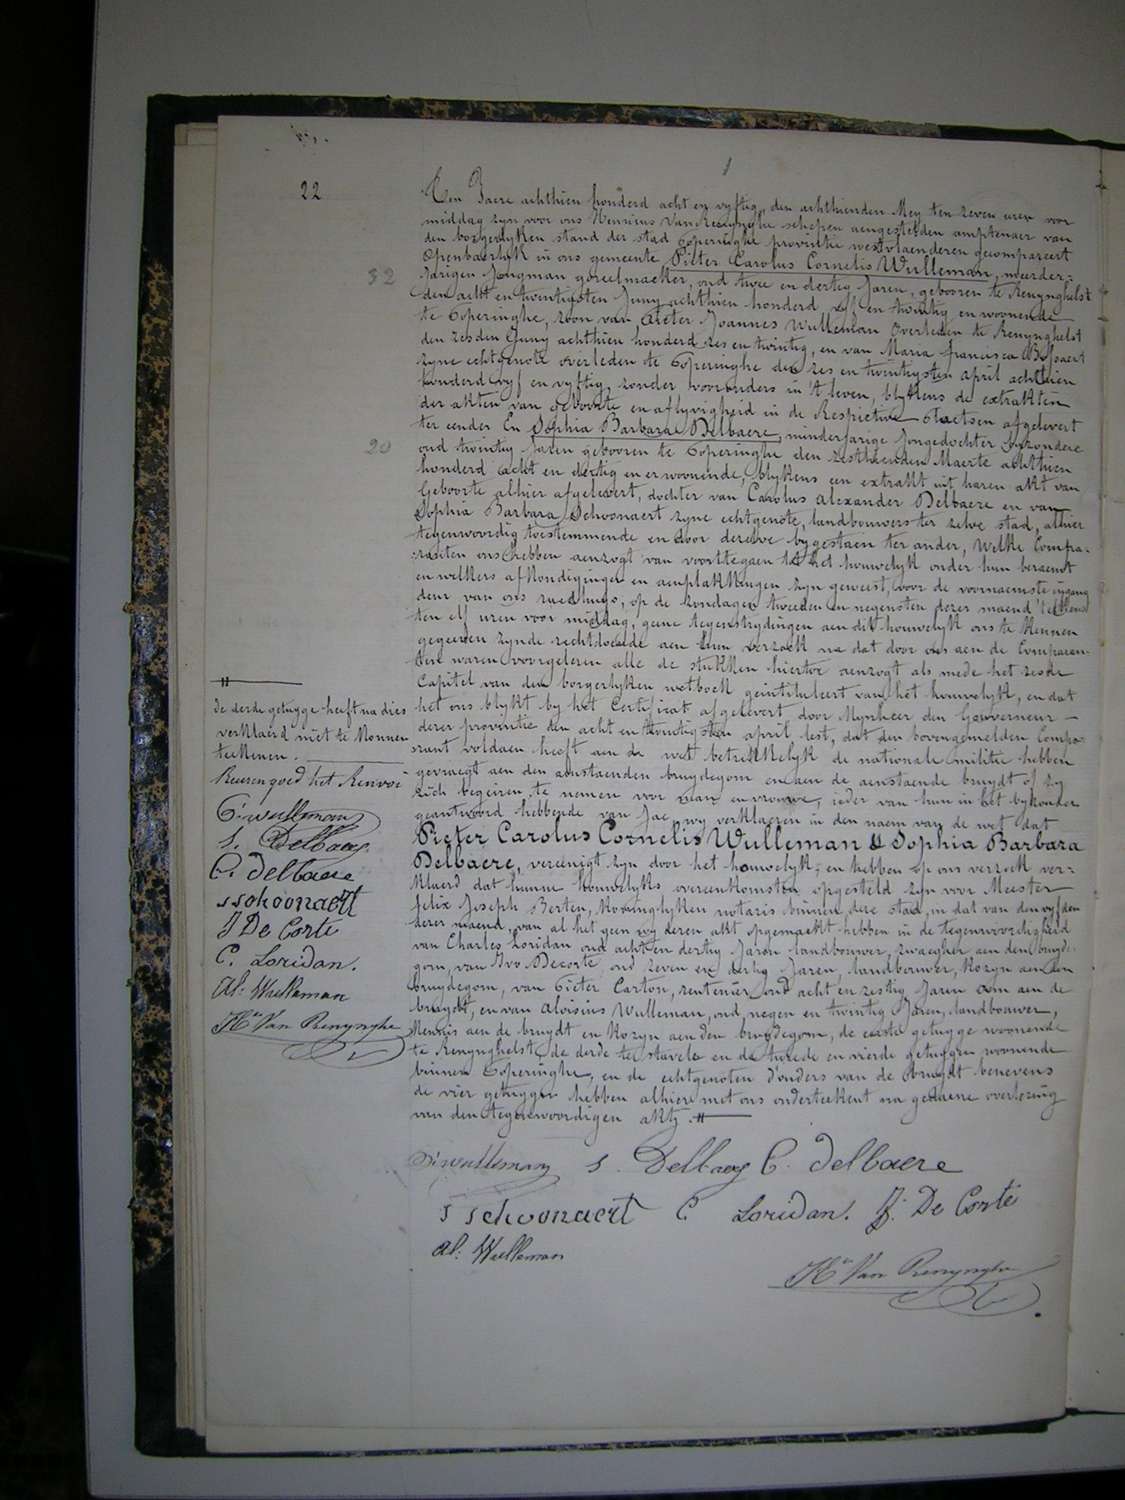 22
Ten Jaere achthien honderd acht en vyftig, den achthienden Mey ten zeven uren voor
middag zyn voor ons Henricus Van Renynghe schepen aengestelden amptenaer van
den borgerlyken stand der stad Poperinghe provintie westvlaenderen gecompareert
Openbaerlyk in ons gemeente Pieter Carolus Cornelis Wulleman, meerder-
32
Jarigen Jongman gareelmaeker, oud twee en dertig Jaren, gebooren te Renynghelst
den acht en twintigsten Juny achthien honderd vyf en twintig en woonende
te Poperinghe, zoon van Pieter Joannes Wulleman overleden te Renynghelst
den zesden Juny achthien honderd zes en twintig, en van Maria francisca
zyne echtgenote overleden te Poperinghe den zes en twintigsten april achthien
honderd vyf en vyftig, zonder voorouders in 't leven, blykens de extrakten
der akten van geboorte en aflyvigheid in de Respective plaetsen afgelevert
ter eender En Sophia Barbara Delbaere, minderjarige Jongedochter byzondere
20
oud twintig Jaren gebooren te Poperinghe den zesthienden Maerte achthien
honderd acht en dertig en er woonende, blykens een extrakt uit haren akt van
Geboorte alhier afgelevert, dochter van Carolus Alexander Delbaere en van
Sophia Barbara Schoonaert zyne echtgenote, landbouwers ter zelve stad, alhier
tegenwoordig toestemmende en door dezelve bygestaen ter ander, Welke Compa-
ranten ons hebben aenzogt van voorttegaen tot het houwelyk onder hun beraemt
en welkers afkondigingen en aenplakkingen zyn geweest, voor de voornaemste ingang
deur van ons raedhuis, op de zondagen tweeden en negensten dezer maend telkens
ten elf uren voor middag, geene tegenstrydingen aen dit houwelyk ons te kennen
gegeeven zynde rechtdoende aen hun verzoek na dat door ons aen de Comparan-
ten waren voorgelezen alle de stukken hiertoe aenzogt als mede het zesde
Capitel van den borgerlyken wetboek geintituleert van het houwelyk, en dat
het ons blykt by het Certificat afgelevert door Mynheer den Gouverneur
dezer provintie den acht en twintigsten april lest, dat den bovengemelden Compa-
rant voldaen heeft aen de wet betrekkelyk de nationale militie hebben
gevraegt aen den aenstaenden bruydegom en aen de aenstaende bruydt of zy
zich begeiren te nemen voor man en vrouwe, ieder van hun in het byzonder
geantwoord hebbende van Jae, wy verklaeren in den naem van de wet dat
Pieter Carolus Cornelis Wulleman & Sophia Barbara
Delbaere, vereenigt zyn door het houwelyk, en hebben op ons verzoek ver-
klaerd dat hunne houwelyks overeenkomsten opgesteld zyn voor Meester
felix Joseph Berten, koninglyken notaris binnen deze stad, in dat van den vyfden
dezer maend, van al het geen wy dezen akt opgemaekt hebben in de tegenwoordigheid
van Charles Loridan oud acht en dertig Jaren landbouwer, zwaegher aen den bruyde-
gom, van Ivo Decorte, oud zeven en dertig Jaren, landbouwer, kozyn aen den
bruydegom, van Pieter Carton, rentenier, oud acht en zestig Jaren oom aen de
bruydt, en van Aloisius Wulleman, oud negen en twintig Jaren, landbouwer,
kennis aen de bruydt en kozyn aen den bruydegom, de eerste getuyge woonende
te Renynghelst, de derde te stavele en de tweede en vierde getuygen woonende
binnen Poperinghe, en de echtgenoten d'ouders van de bruydt benevens
de vier getuygen hebben alhier met ons onderteekent na gedaene overlezing
van den tegenwoordigen akt.
P. wulleman S. Delbaere C. Delbaere
S Schoonaert C. Loridan. J. De Corte
Al: Wulleman
He Van Renynghe
de derde getuyge heeft na dies
verklaerd niet te konnen
teekenen.
Keuren goed het Renvoi
P. wulleman
S. Delbaere
C. delbaere
S Schoonaert
J De Corte
C. Loridan.
Al: Wulleman
He Van Renynghe